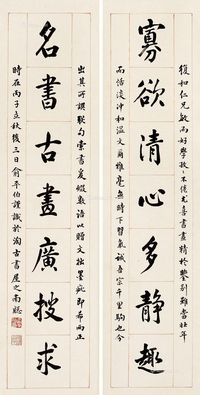 復初仁兄敏而好學孜孜不倦尤喜書畫精於鑒別雖當壯年
寡欲清心多靜趣
而恬淡沖和溫文爾雅毫無時下習氣誠吾宗千里駒也今
出其所誤聯句索書爰綴數語以贈文拙墨疵即希兩正
名書古畫廣搜求
時在丙子立秋後三日俞平伯謹識於海古書屋之南窗